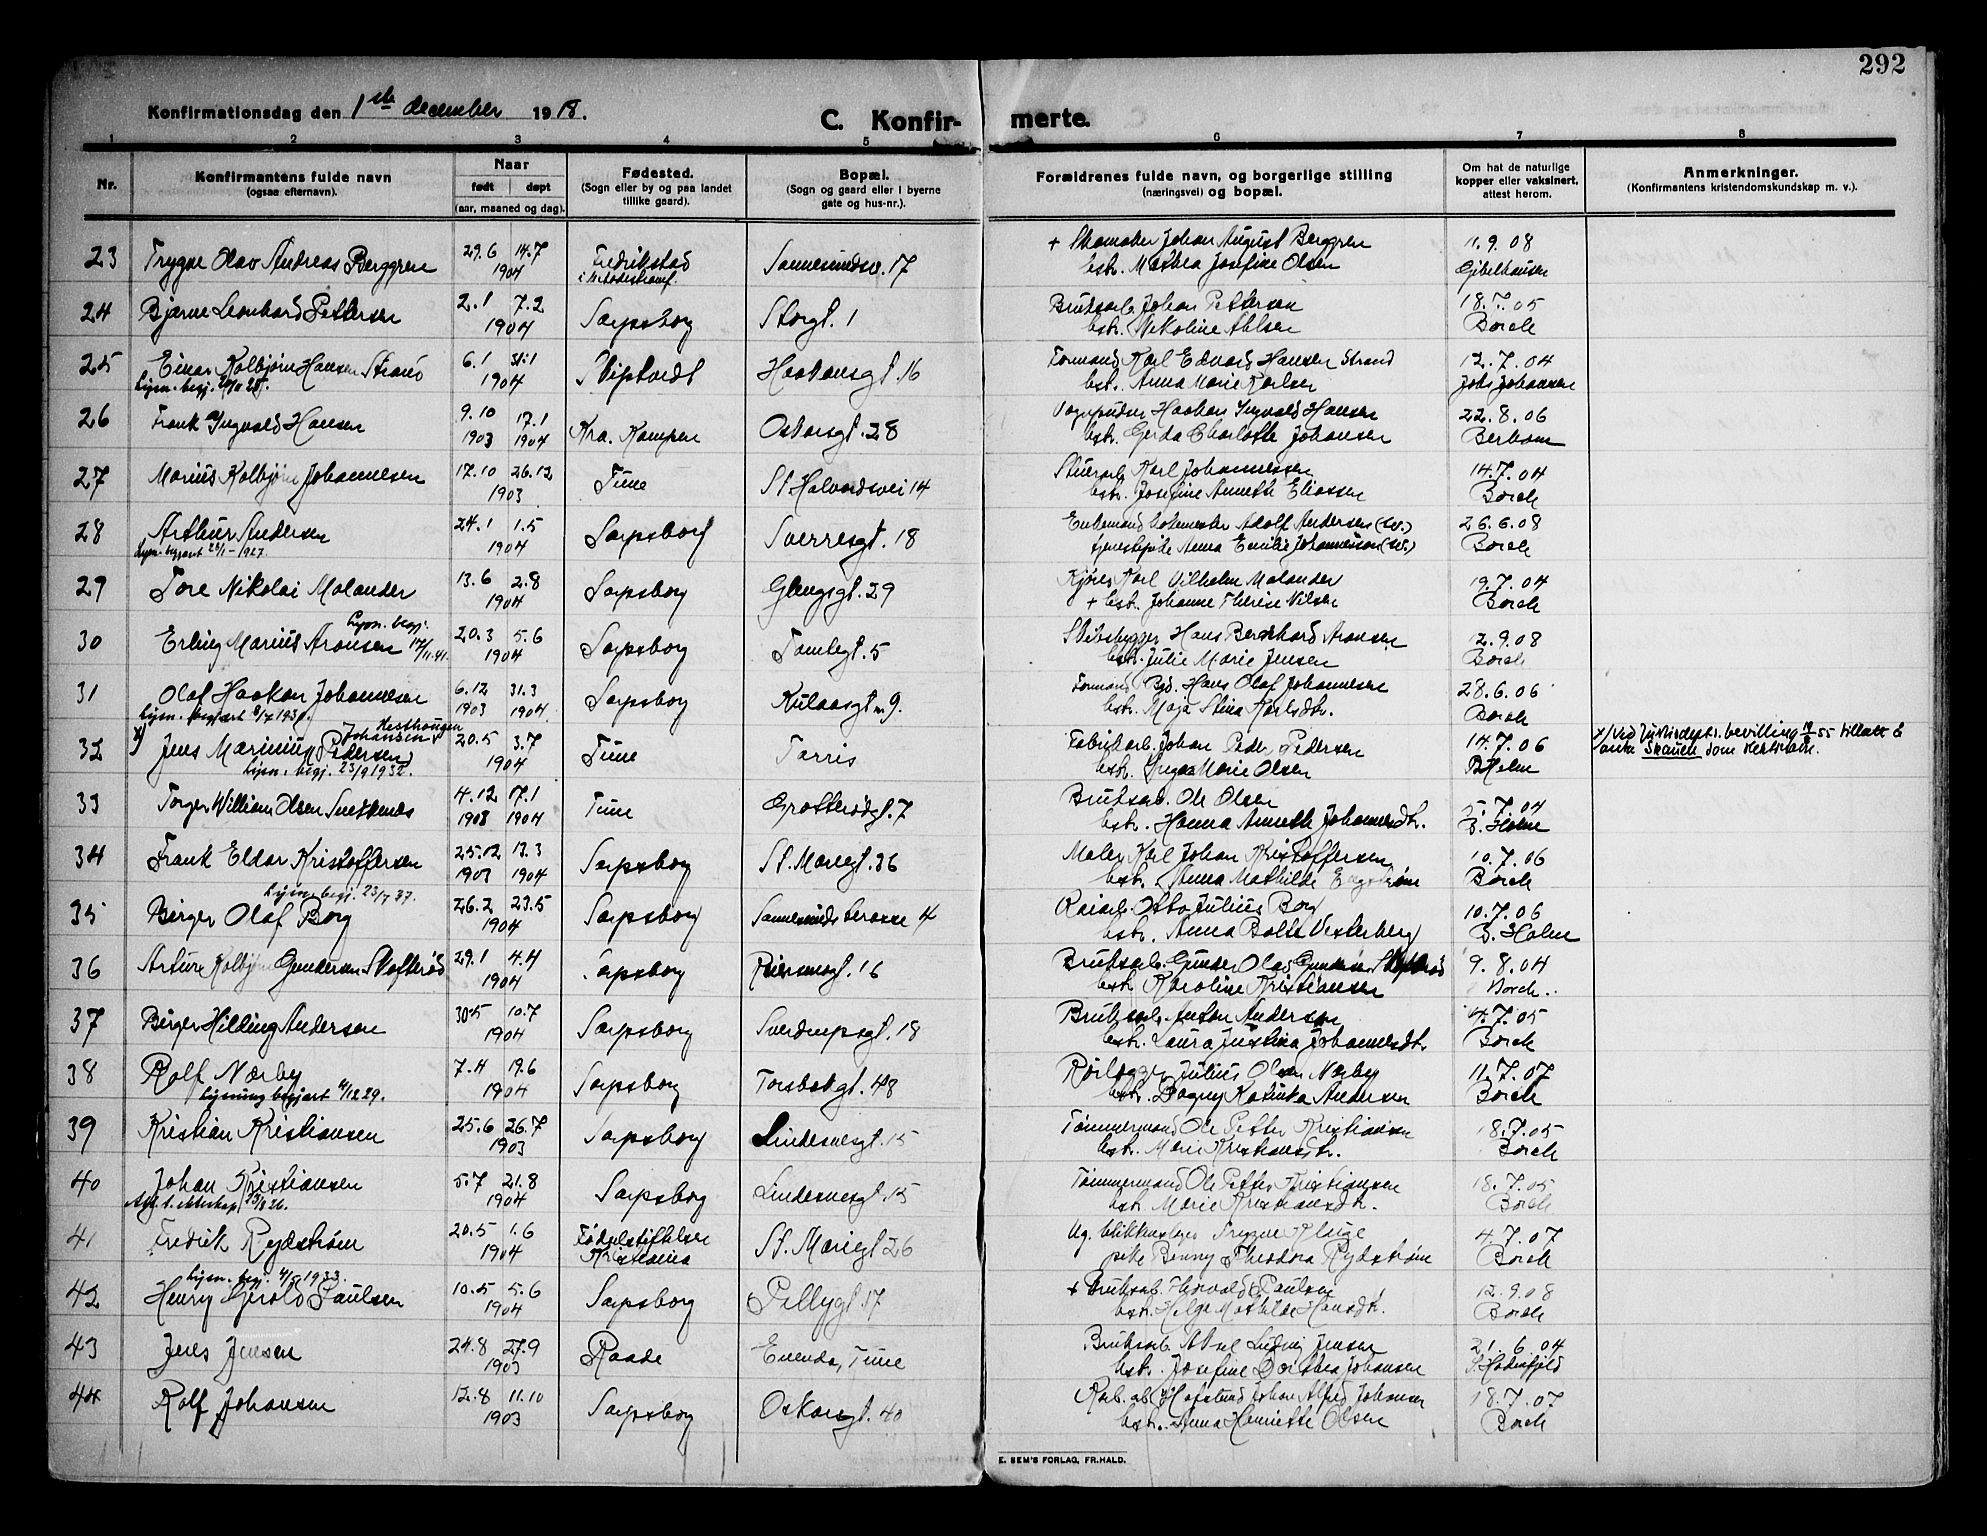 292
Konfirmationsdag den 1ste december 1918.
C. Konfir-merte.
1 2 3 4 5 6 7 8
Nr.
Konfirmantens fulde navn
(ogsaa efternavn).
Naar
født døpt
(aar, maaned og dag).
Fødested.
(Sogn eller by og paa landet
tillike gaard).
Bopæl.
(Sogn og gaard eller i byerne
gate og hus-nr.).
Forældrenes fulde navn, og borgerlige stilling
(næringsvei) og bopæl.
Om hat de naturlige
kopper eller vaksinert,
attest herom.
Anmerkninger.
(Konfirmantens kristendomskundskap m. v.).
23 Trygve Olav Andreas Berggren 29.6 14.7 Fredrikstad Sannesundsv. 17 + Skomaker Johan August Berggren 11.9.08
1904 i Metodistsamf. hstr. Mathea Josefine Olsen Gibelhausen
24 Bjarne Leonhard Pettersen 2.1 7.2 Sarpsborg Storgt. 1 Bruksarb. Johan Pettersen 18.7.05
1904 hstr. Nikoline Ahlsen Borch
25 Einar Kolbjørn Hansen Strand 6.1 31.1 Skiptvedt Haakonsgt. 16 Formand Karl Edvard Hansen Strand 12.7.04
Lysn. begj. 28. 1904 hstr. Anna Marie Karlsen Johs Johansen
26 Frank Yngvald Hansen 9.10 17.1 Kra. Kampen Oskarsgt. 28 Haakon Yngvald Hansen 22.8.06
1903 1904 hstr. Gerda Charlotte Johansen
27 Marius Kolbjørn Johannesen 17.10 26.12 Tune St Halvardsvei 14 Karl Johannessen 14.7.04
1903 hstr. Josefine Annette Eliassen Borch
28 Arthur Andersen 24.1 1.5 Sarpsborg Sverresgt. 18 Enkemand bokmester Adolf Andersen (sv.) 26.6.08
Lysn. begjært 1927. 1904 tjenestepike Anna Emilie Johannesson (sv.) Borch
29 Tore Nikolai Molander 13.6 2.8 Sarpsborg Glengsgt. 29 Kjører Karl Vilhelm Molander 19.7.04
1904 + hstr. Johanne Therese Nilsen Borch
Lysn. begj.
30 Erling Marius Aronsen 17/11.41. 20.3 5.6 Sarpsborg Tomtegt. 5 Skibsbygger Hans Bernhard Aronsen 2.9.08
1904 hstr. Julie Marie Jensen Borch
31 Olaf Haakon Johannesen 6.12 31.3 Sarpsborg Kulaasgt. 9. Formand Hans Olaf Johannesen 28.6.06
Lysn. begjært 1930. 1903 1904 hstr. Maja Stina Karlsdtr. Borch
Johansen
32 x) Jens Marinius Pedersen 20.5 3.7 Tune Torris Fabrikarb. Johan Peder Pedersen 14.7.06
Lysn. begj. 23/9 1932. 1904 hstr. Inga Marie Olsen B Holm
x) Ved Justisdepts. bevilling 55 tillatt å
Skauen som
33 Torger William Olsen 4.12 17.1 Tune Grotterødgt. 7 Bruksarb. Ole Olsen 5.7.04
1903 1904 hstr. Hanna Annette Johannesdtr. B. Holm
34 Frank Eldar Kristoffersen 25.12 13.3 Sarpsborg St. Mariegt. 36 Maler Karl Johan Kristoffersen 10.7.06
1903 1904 hstr. Anna Mathilde Engstrøm Borch
Lysn. begj. 23/7 37.
35 Birger Olaf Borg 26.2 23.5 Sarpsborg Sannesunds terasse 4 Otto Julius Borg 10.7.06
1904 hstr. Anna Bolte Vesterberg B. Holm
36 Arture Kolbjørn Gundersen Skofterød 29.1 4.4 Sarpsborg 16 Bruksarb. Gunder Olav Gundersen Skofterød 9.8.04
1904 hstr. Karoline Kristiansen Borch.
37 Birger Hilding Andersen 30.5 10.7 Sarpsborg Sverdrupsgt. 18 Bruksarb. Anton Andersen 4.7.05
1904 hstr. Laura Justina Johannesdtr. Borch
38 Rolf Nærby 7.4 19.6 Sarpsborg Torsbekgt. 48 Rørlegger Julius Olsen Nærby 11.7.07
Lysning begjært 4/12 29. 1904 hstr. Dagny Katinka Andersen Borch
39 Kristian Kristiansen 25.6 26.7 Sarpsborg Lindesnesgt. 15 Tømmermand Ole Petter Kristiansen 18.7.05
1903 hstr. Marie Kristiansdtr. Borch
40 Johan Kristiansen 5.7 21.8 Sarpsborg Lindesnesgt. 15 Tømmermand Ole Petter Kristiansen 18.7.05
26. 1904 hstr. Marie Kristiansdtr. Borch
41 Fredrik Rydstrøm 20.5 1.6 Fødselsstiftelsen St. Mariegt 26 Ug. blikkenslager Trygve Kluge 4.7.07
1904 Kristiania pike Benny Theodora Rydstrøm Borch
Lysn. begj. 1933.
42 Henry Gerold Paulsen 10.5 5.6 Sarpsborg Pellygt. 17 + Bruksarb. Thorvald Paulsen 12.9.08
1904 hstr. Helga Mathilde Hansdtr. Borch
43 Jens Jensen 24.8 27.9 Raade Enenda, Tune Bruksarb. Aksel Ludvig Jensen 21.6.04
1903 hstr. Josefine Dorthea Johansen
44 Rolf Johansen 12.8 11.10 Sarpsborg Oskarsgt. 40 Johan Alfred Johansen 18.7.07
1903 hstr. Anna Henriette Olsen Borch
E. SEM'S FORLAG, FR.HALD.